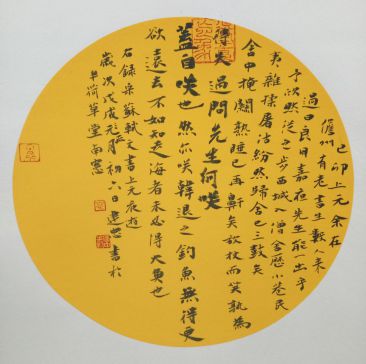 己卯上元余在
儋州有老書生數人來
過曰良月嘉夜先生能一出乎
予欣然從之步西城入僧舍歷小巷民
夷雜揉屠沽紛然歸舍已三鼓矣
舍中掩關熟睡已再鼾矣放杖而笑孰為
得失過問先生何咲
蓋自咲也然尔咲韓退之釣魚無得更
欲遠去不如知走海者未必得大魚也
右録宋蘇軾文書上元夜遊
歲次戊戌初六日建書於
半荷草堂南窗